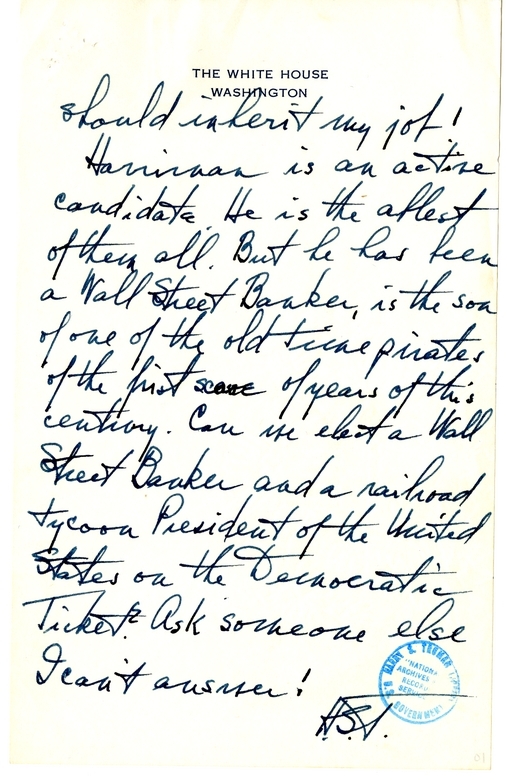 THE WHITE HOUSE
WASHINGTON
should inherit my job!
Harriman is an active
candidate. He is the ablest
of them all. But he has been
a Wall Street Banker, is the son
of one of the old time pirates
of the first score of years of this
century. Can we elect a Wall
Street Banker and a railroad
tycoon President of the United
States on the Democratic
Ticket? Ask someone else
I can't answer!
HARRY S. TRUMAN LIBRARY
"NATIONAL
ARCHIVES
RECORDS
SERVICE"
GOVERNMENT
H.S.T.
01